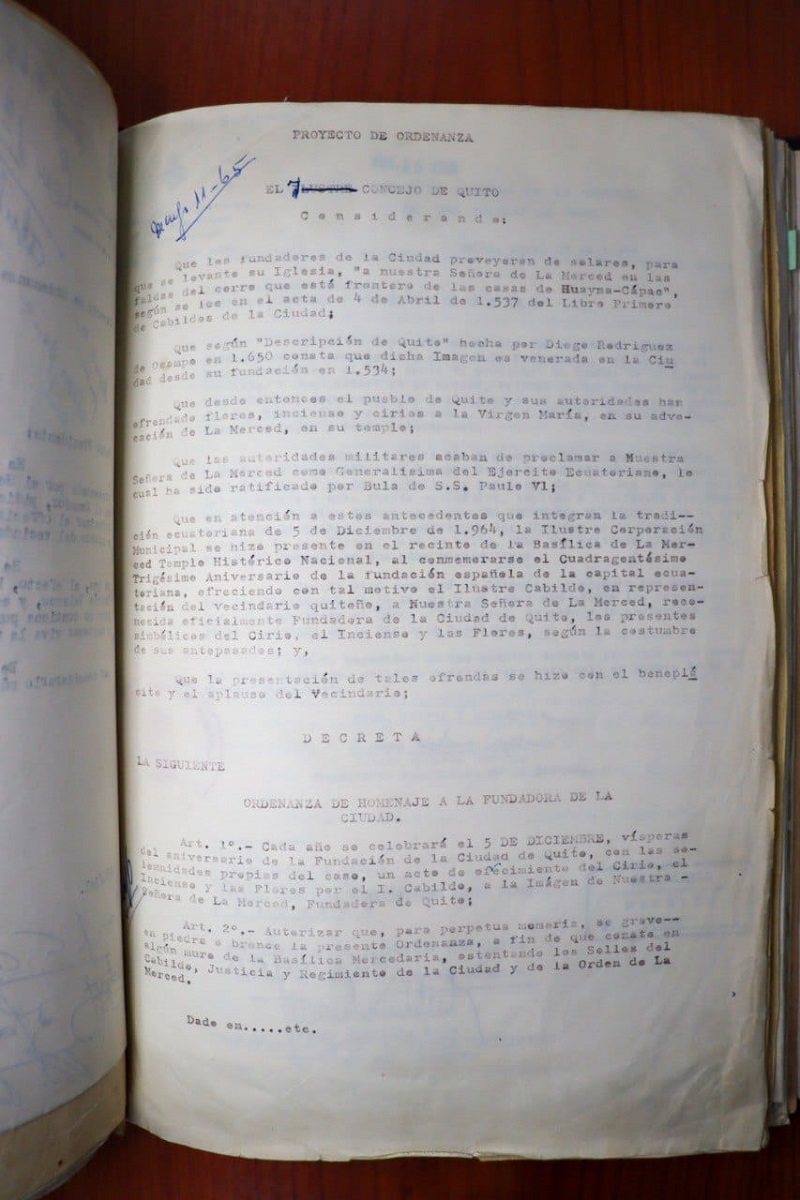 PROYECTO DE ORDENANZA
mayo 11-65
EL I. CONCEJO DE QUITO
C o n s i d e r a n d o :
Que los fundadores de la Ciudad proveyeron de solares, para
que se levante su Iglesia, "a nuestra Señora de La Merced en las
faldas del cerro que está frontero de las casas de Huayna-Cápac",
según se lee en el acta de 4 de Abril de 1.537 del Libro Primero
de Cabildos de la Ciudad;
Que según "Descripción de Quito" hecha por Diego Rodríguez
de Ocampo en 1.650 consta que dicha Imagen es venerada en la Ciu
dad desde su fundación en 1.534;
Que desde entonces el pueblo de Quito y sus autoridades han
ofrendado flores, incienso y cirios a la Virgen María, en su advo-
cación de La Merced, en su templo;
Que las autoridades militares acaban de proclamar a Nuestra
Señora de La Merced como Generalísima del Ejercito Ecuatoriano, lo
cual ha sido ratificado por Bula de S.S. Paulo VI;
Que en atención a estos antecedentes que integran la tradi--
ción ecuatoriana de 5 de Diciembre de 1.964, la Ilustre Corporación
Municipal se hizo presente en el recinto de la Basílica de La Mer-
ced Templo Histórico Nacional, al conmemorarse el Cuadragentésimo
Trigésimo Aniversario de la fundación española de la capital ecua-
toriana, ofreciendo con tal motivo el Ilustre Cabildo, en represen-
tación del vecindario quiteño, a Nuestra Señora de La Merced, reco-
nocida oficialmente Fundadora de la Ciudad de Quito, los presentes
simbólicos del Cirio, el Incienso y las Flores, según la costumbre
de sus antepasados; y,
Que la presentación de tales ofrendas se hizo con el beneplá
cito y el aplauso del Vecindario;
D E C R E T A
LA SIGUIENTE
ORDENANZA DE HOMENAJE A LA FUNDADORA DE LA
CIUDAD.
Art. 1º.- Cada año se celebrará el 5 DE DICIEMBRE, vísperas
del aniversario de la Fundación de la Ciudad de Quito, con las so-
lemnidades propias del caso, un acto de ofrecimiento del Cirio, el
Incienso y las Flores por el I. Cabildo, a la Imágen de Nuestra -
Señora de La Merced, Fundadora de Quito;
Art. 2º.- Autorizar que, para perpetua memoria, se grave--
en piedra o bronce la presente Ordenanza, a fin de que conste en
algún muro de la Basílica Mercedaria, ostentando los Sellos del
Cabildo, Justicia y Regimiento de la Ciudad y de la Orden de La
Merced.
Dado en.....etc.